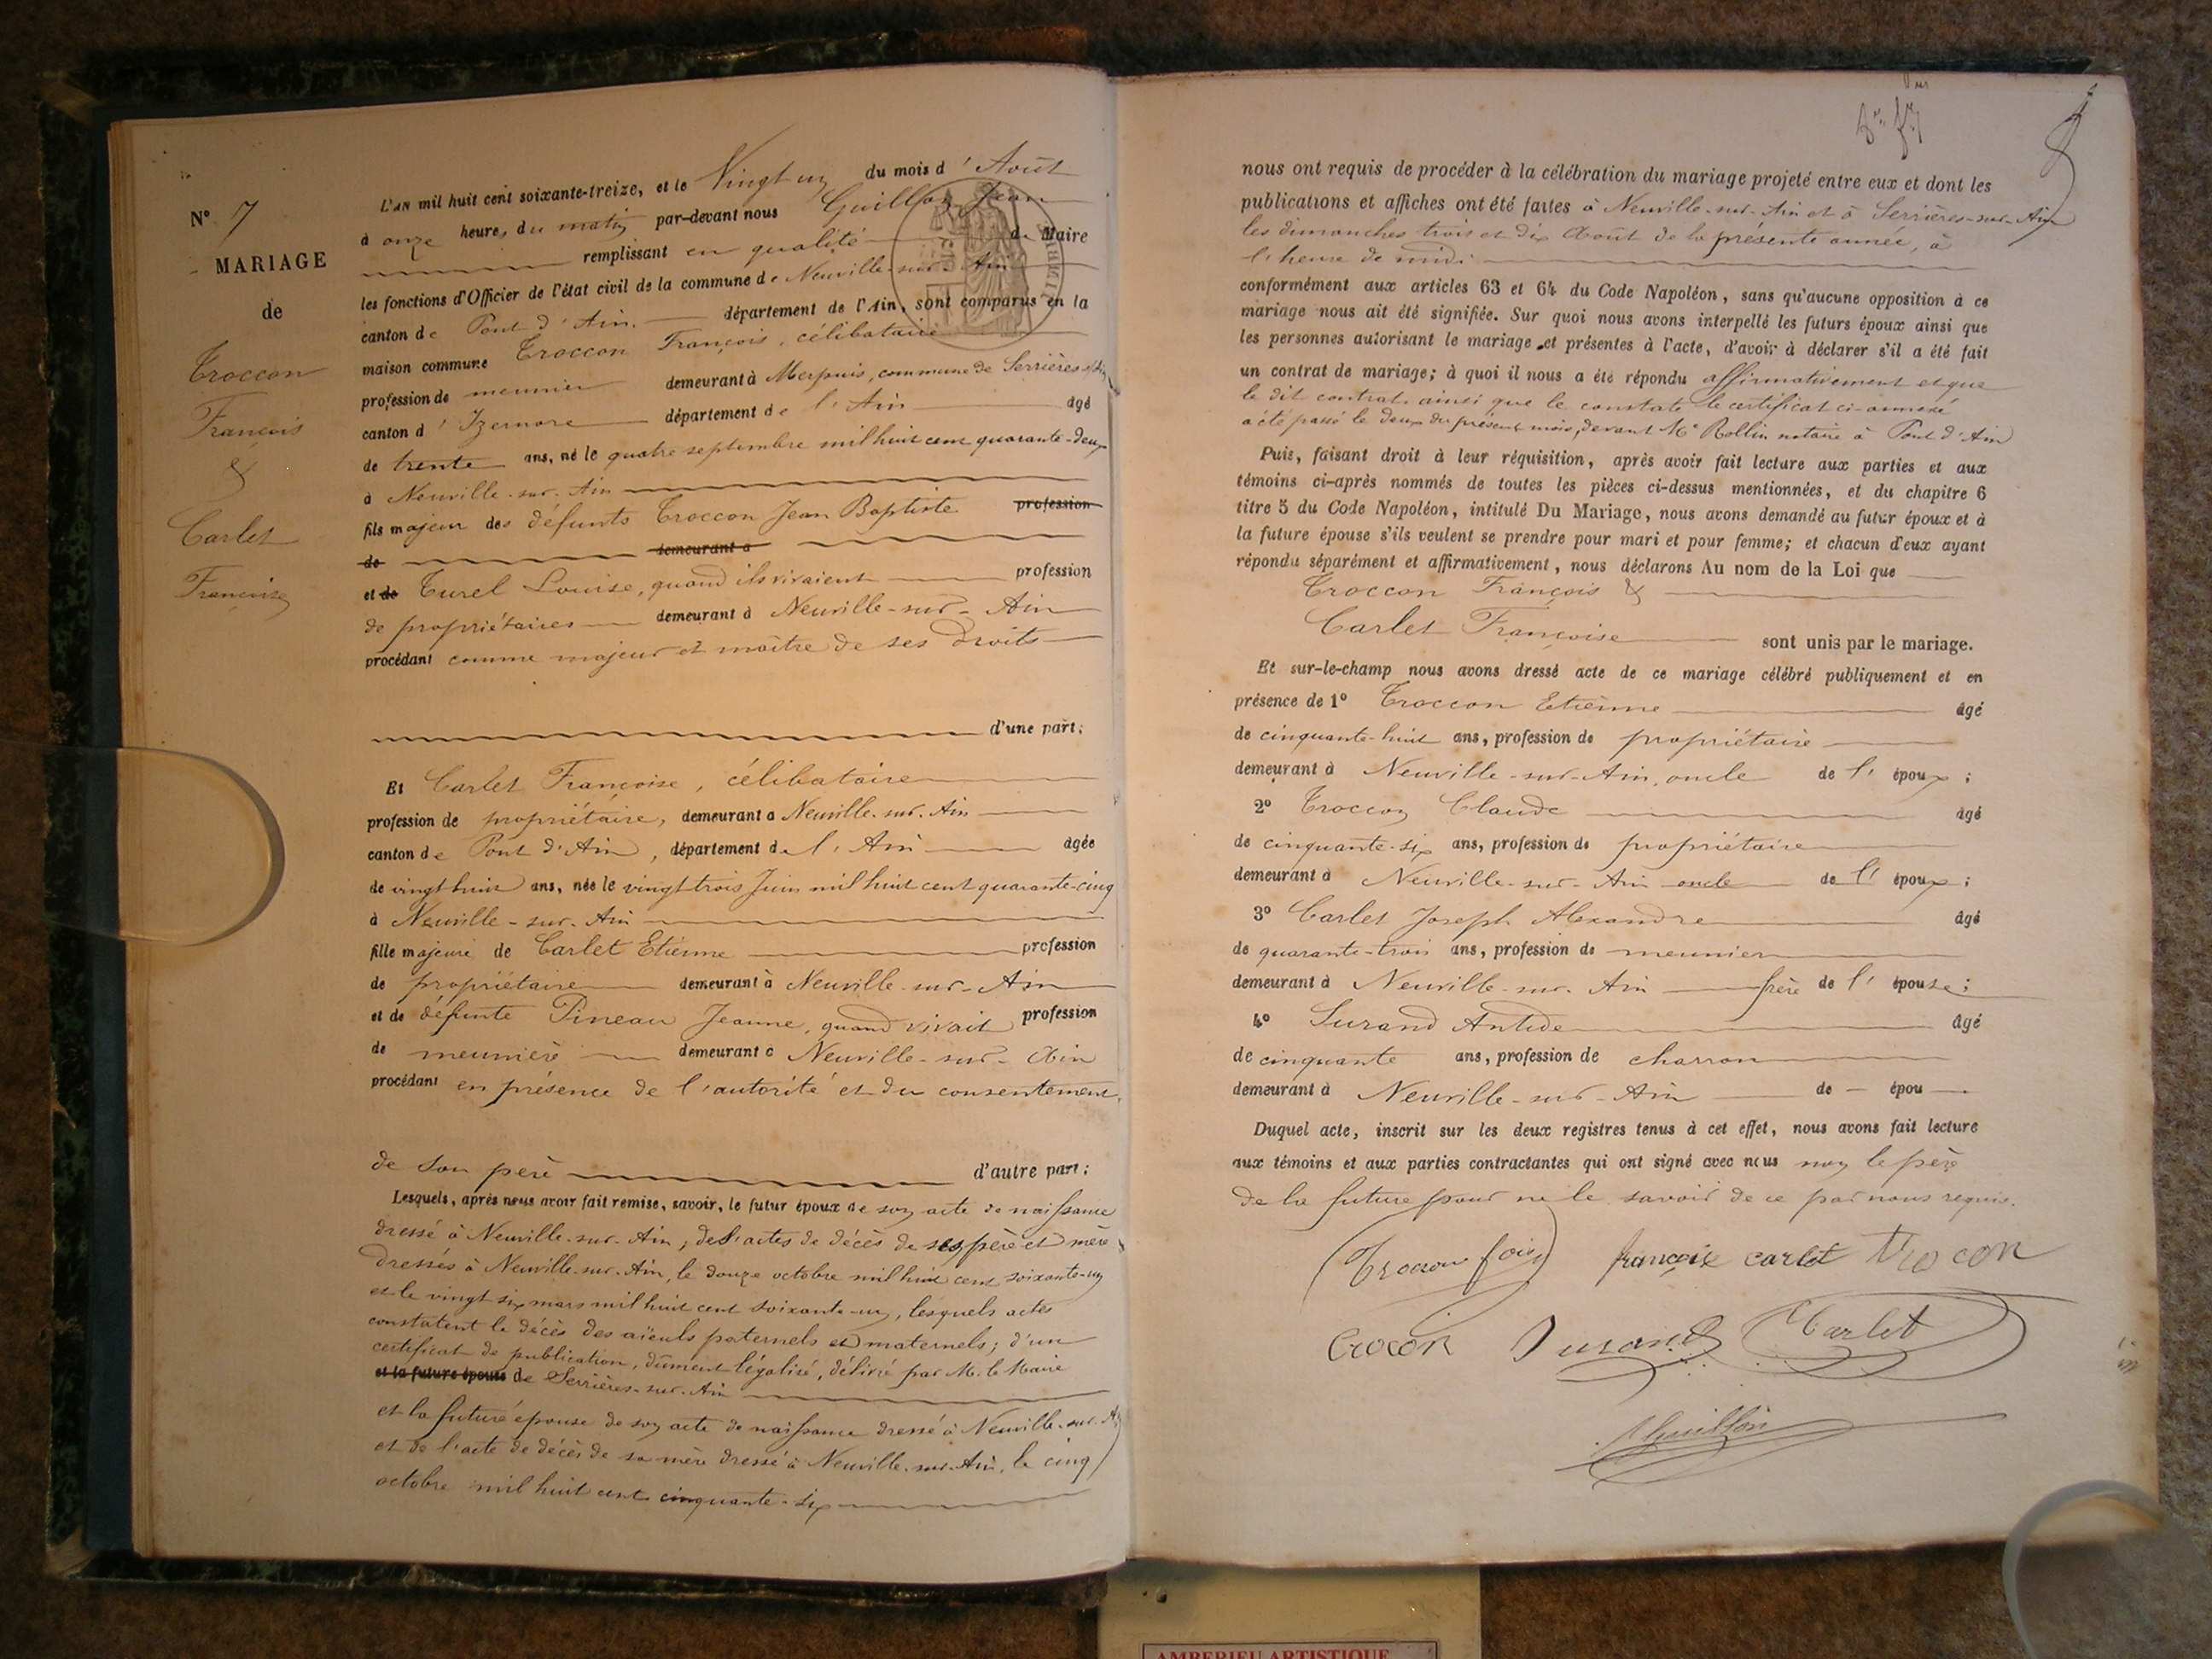 N° 7
MARIAGE
de
Troccon
François
&
Carlet
Françoise
L'AN mil huit cent soixante-treize, et le Vingt un du mois d'Août
à onze heures du matin par-devant nous Guillon Jean
remplissant en qualité de Maire
les fonctions d'Officier de l'état civil de la commune de Neuville-sur-Ain
canton de Pont d'Ain. département de l'Ain, sont comparus en la
maison commune Troccon François, célibataire
profession de meunier demeurant à Merpuis, commune de Serrières s/Ain
canton d'Izernore département de l'Ain âgé
de trente ans, né le quatre septembre mil huit cent quarante-deux
à Neuville-sur-Ain
fils majeur des défunts Troccon Jean Baptiste profession
de demeurant à
et de Turel Louise, quand ils vivaient profession
de propriétaires demeurant à Neuville-sur-Ain
procédant comme majeur et maître de ses droits
d'une part;
Et Carlet Françoise, célibataire
profession de propriétaire, demeurant à Neuville-sur-Ain
canton de Pont d'Ain, département de l'Ain âgée
de vingt huit ans, née le vingt trois Juin mil huit cent quarante-cinq
à Neuville-sur-Ain
fille majeure de Carlet Etienne profession
de propriétaire demeurant à Neuville-sur-Ain
et de défunte Pineau Jeanne, quand vivait profession
de meunière demeurant à Neuville-sur-Ain
procédant en présence de l'autorité et du consentement
de son père d'autre part;
Lesquels, après nous avoir fait remise, savoir, le futur époux de son acte de naissance
dressé à Neuville-sur-Ain, des actes de décès de ses père et mère
dressés à Neuville-sur-Ain, le douze octobre mil huit cent soixante-un
et le vingt six mars mil huit cent soixante-un, lesquels actes
constatent le décès des aïeuls paternels et maternels; d'un
certificat de publication, dûment légalisé, délivré par M. le Maire
et la future épouse de Serrières-sur-Ain
et la future épouse de son acte de naissance dressé à Neuville-sur-Ain
et de l'acte de décès de sa mère dressé à Neuville-sur-Ain, le cinq
octobre mil huit cent cinquante-six
nous ont requis de procéder à la célébration du mariage projeté entre eux et dont les
publications et affiches ont été faites à Neuville-sur-Ain et à Serrières-sur-Ain
les dimanches trois et dix Août de la présente année, à
l'heure de midi
conformément aux articles 63 et 64 du Code Napoléon, sans qu'aucune opposition à ce
mariage nous ait été signifiée. Sur quoi nous avons interpellé les futurs époux ainsi que
les personnes autorisant le mariage et présentes à l'acte, d'avoir à déclarer s'il a été fait
un contrat de mariage; à quoi il nous a été répondu affirmativement et que
le dit contrat ainsi que le constate le certificat ci-annexé
a été passé le deux du présent mois, devant Me Rollin notaire à Pont d'Ain
Puis, faisant droit à leur réquisition, après avoir fait lecture aux parties et aux
témoins ci-après nommés de toutes les pièces ci-dessus mentionnées, et du chapitre 6
titre 5 du Code Napoléon, intitulé Du Mariage, nous avons demandé au futur époux et à
la future épouse s'ils veulent se prendre pour mari et pour femme; et chacun d'eux ayant
répondu séparément et affirmativement, nous déclarons Au nom de la Loi que
Troccon François &
Carlet Françoise sont unis par le mariage.
Et sur-le-champ nous avons dressé acte de ce mariage célébré publiquement et en
présence de 1° Troccon Etienne âgé
de cinquante-huit ans, profession de propriétaire
demeurant à Neuville-sur-Ain, oncle de l'époux;
2° Troccon Claude âgé
de cinquante-six ans, profession de propriétaire
demeurant à Neuville-sur-Ain oncle de l'époux;
3° Carlet Joseph Alexandre âgé
de quarante-trois ans, profession de meunier
demeurant à Neuville-sur-Ain frère de l'épouse;
4° Durand Antide âgé
de cinquante ans, profession de charron
demeurant à Neuville-sur-Ain de épou
Duquel acte, inscrit sur les deux registres tenus à cet effet, nous avons fait lecture
aux témoins et aux parties contractantes qui ont signé avec nous non le père
de la future pour ne le savoir de ce par nous requis.
Troccon fois françoise carlet trocon
Crocon Durand Carlet
JGuillon
AMBERIEU ARTISTIQUE